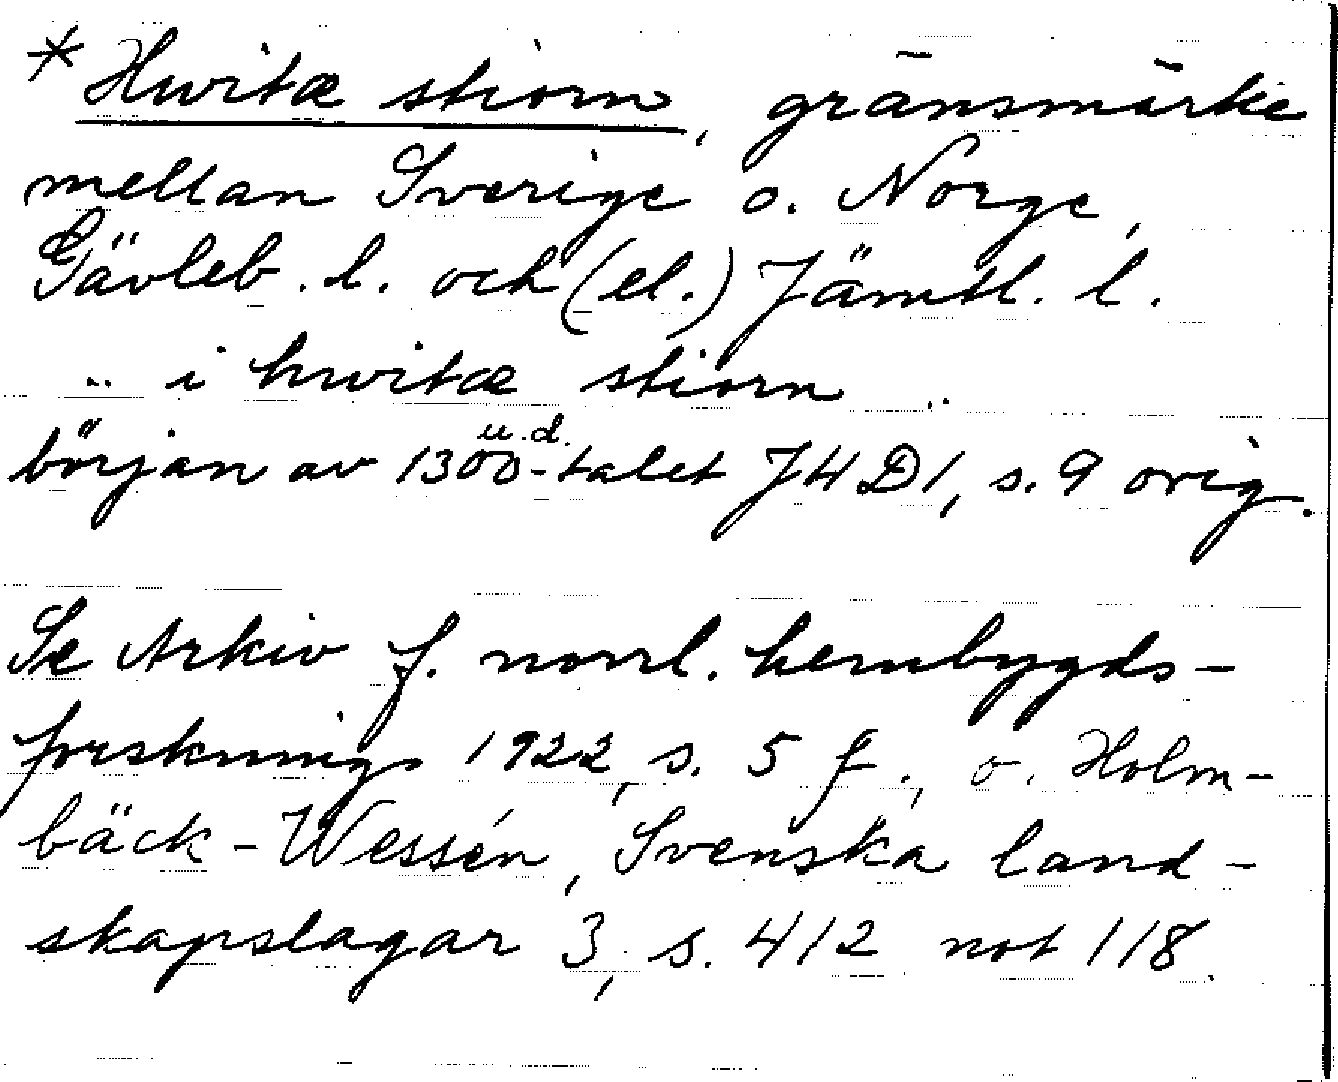 * Hwitæ stiorn, gränsmärke
mellan Sverige o. Norge,
Gävleb. l. och (el.) Jämtl. l.
.. i hwitæ stiorn ..
u.d.
början av 1300-talet J4 D1, s. 9 orig.
Se Arkiv f. norrl. hembygds-
forsknings 1922, s. 5 f., o. Holm-
bäck-Wessén, Svenska land-
skapslagar 3, s. 412 not 118.